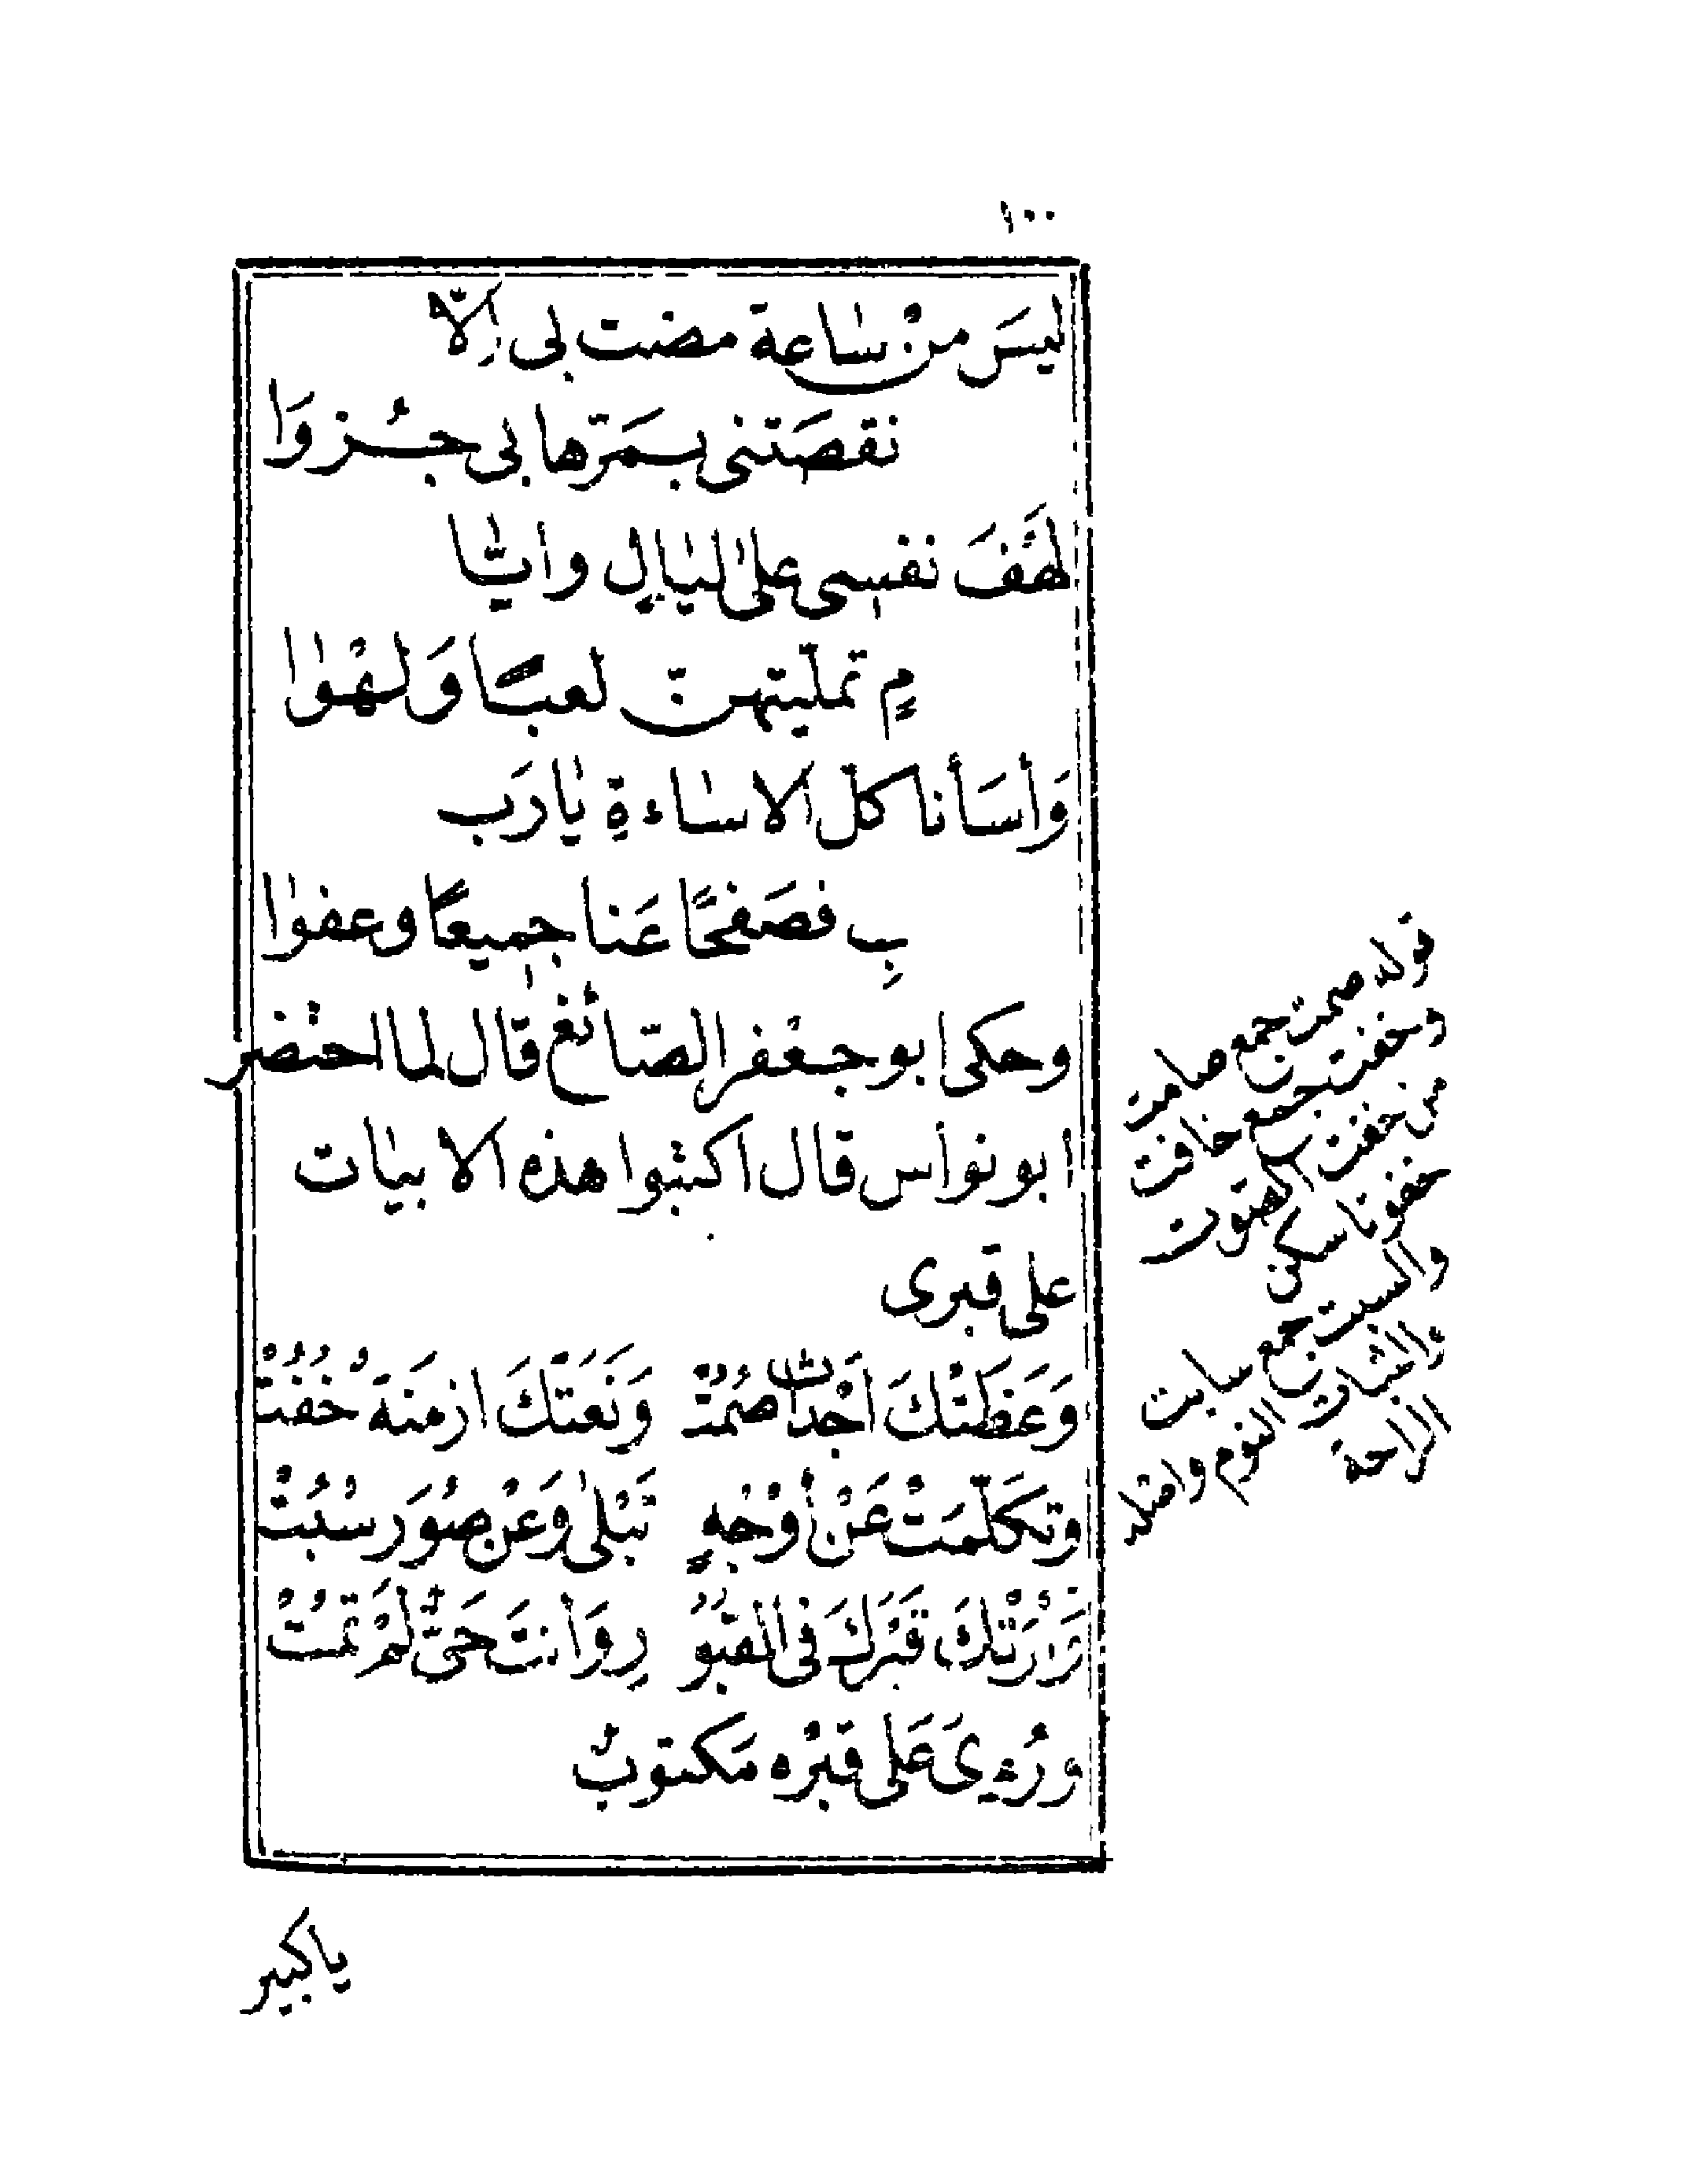 ١٠٠
ليسَ منْ ساعة مضت لى اِلّا
نقصَتنى بـمَرّها بى جُـزوَا
لهَّفَ نفسِى على ليَالٍ وايّا
مٍ تملّيتهنّ لعبًا وَلهْوا
وَأسَأنا كلّ الاساءةِ يَارَب
بِ فصَفحًا عَنا جميعًا وعفوا
وحكى ابو جعْفر الصّائغ قال لما احتضر
ابو نواس قال اكتبوا هذه الابيات
على قبرى
وَعَظَتْكَ اَجْداثٌ صُمُتْ وَنَعَتْكَ ازمَنَةٌ خُفُتْ
وتكَلّمَتْ عَنْ أوْجُهٍ تَبْلَى وَعَنْ صُوَرٍ سُبُتْ
وَأرَتْكَ قَبْرَكَ فى القبُوُ رِ وَأنتَ حَىٌّ لَمْ تَمُتْ
ورُءِىَ عَلى قبْره مَكتوبٌ
قوله صمت جمع صامت
وخفت جمع خافت
من خفت الصوت
خفوتا سكن
والسبت جمع سابت
النوم واصله
الراحة
ياكبير